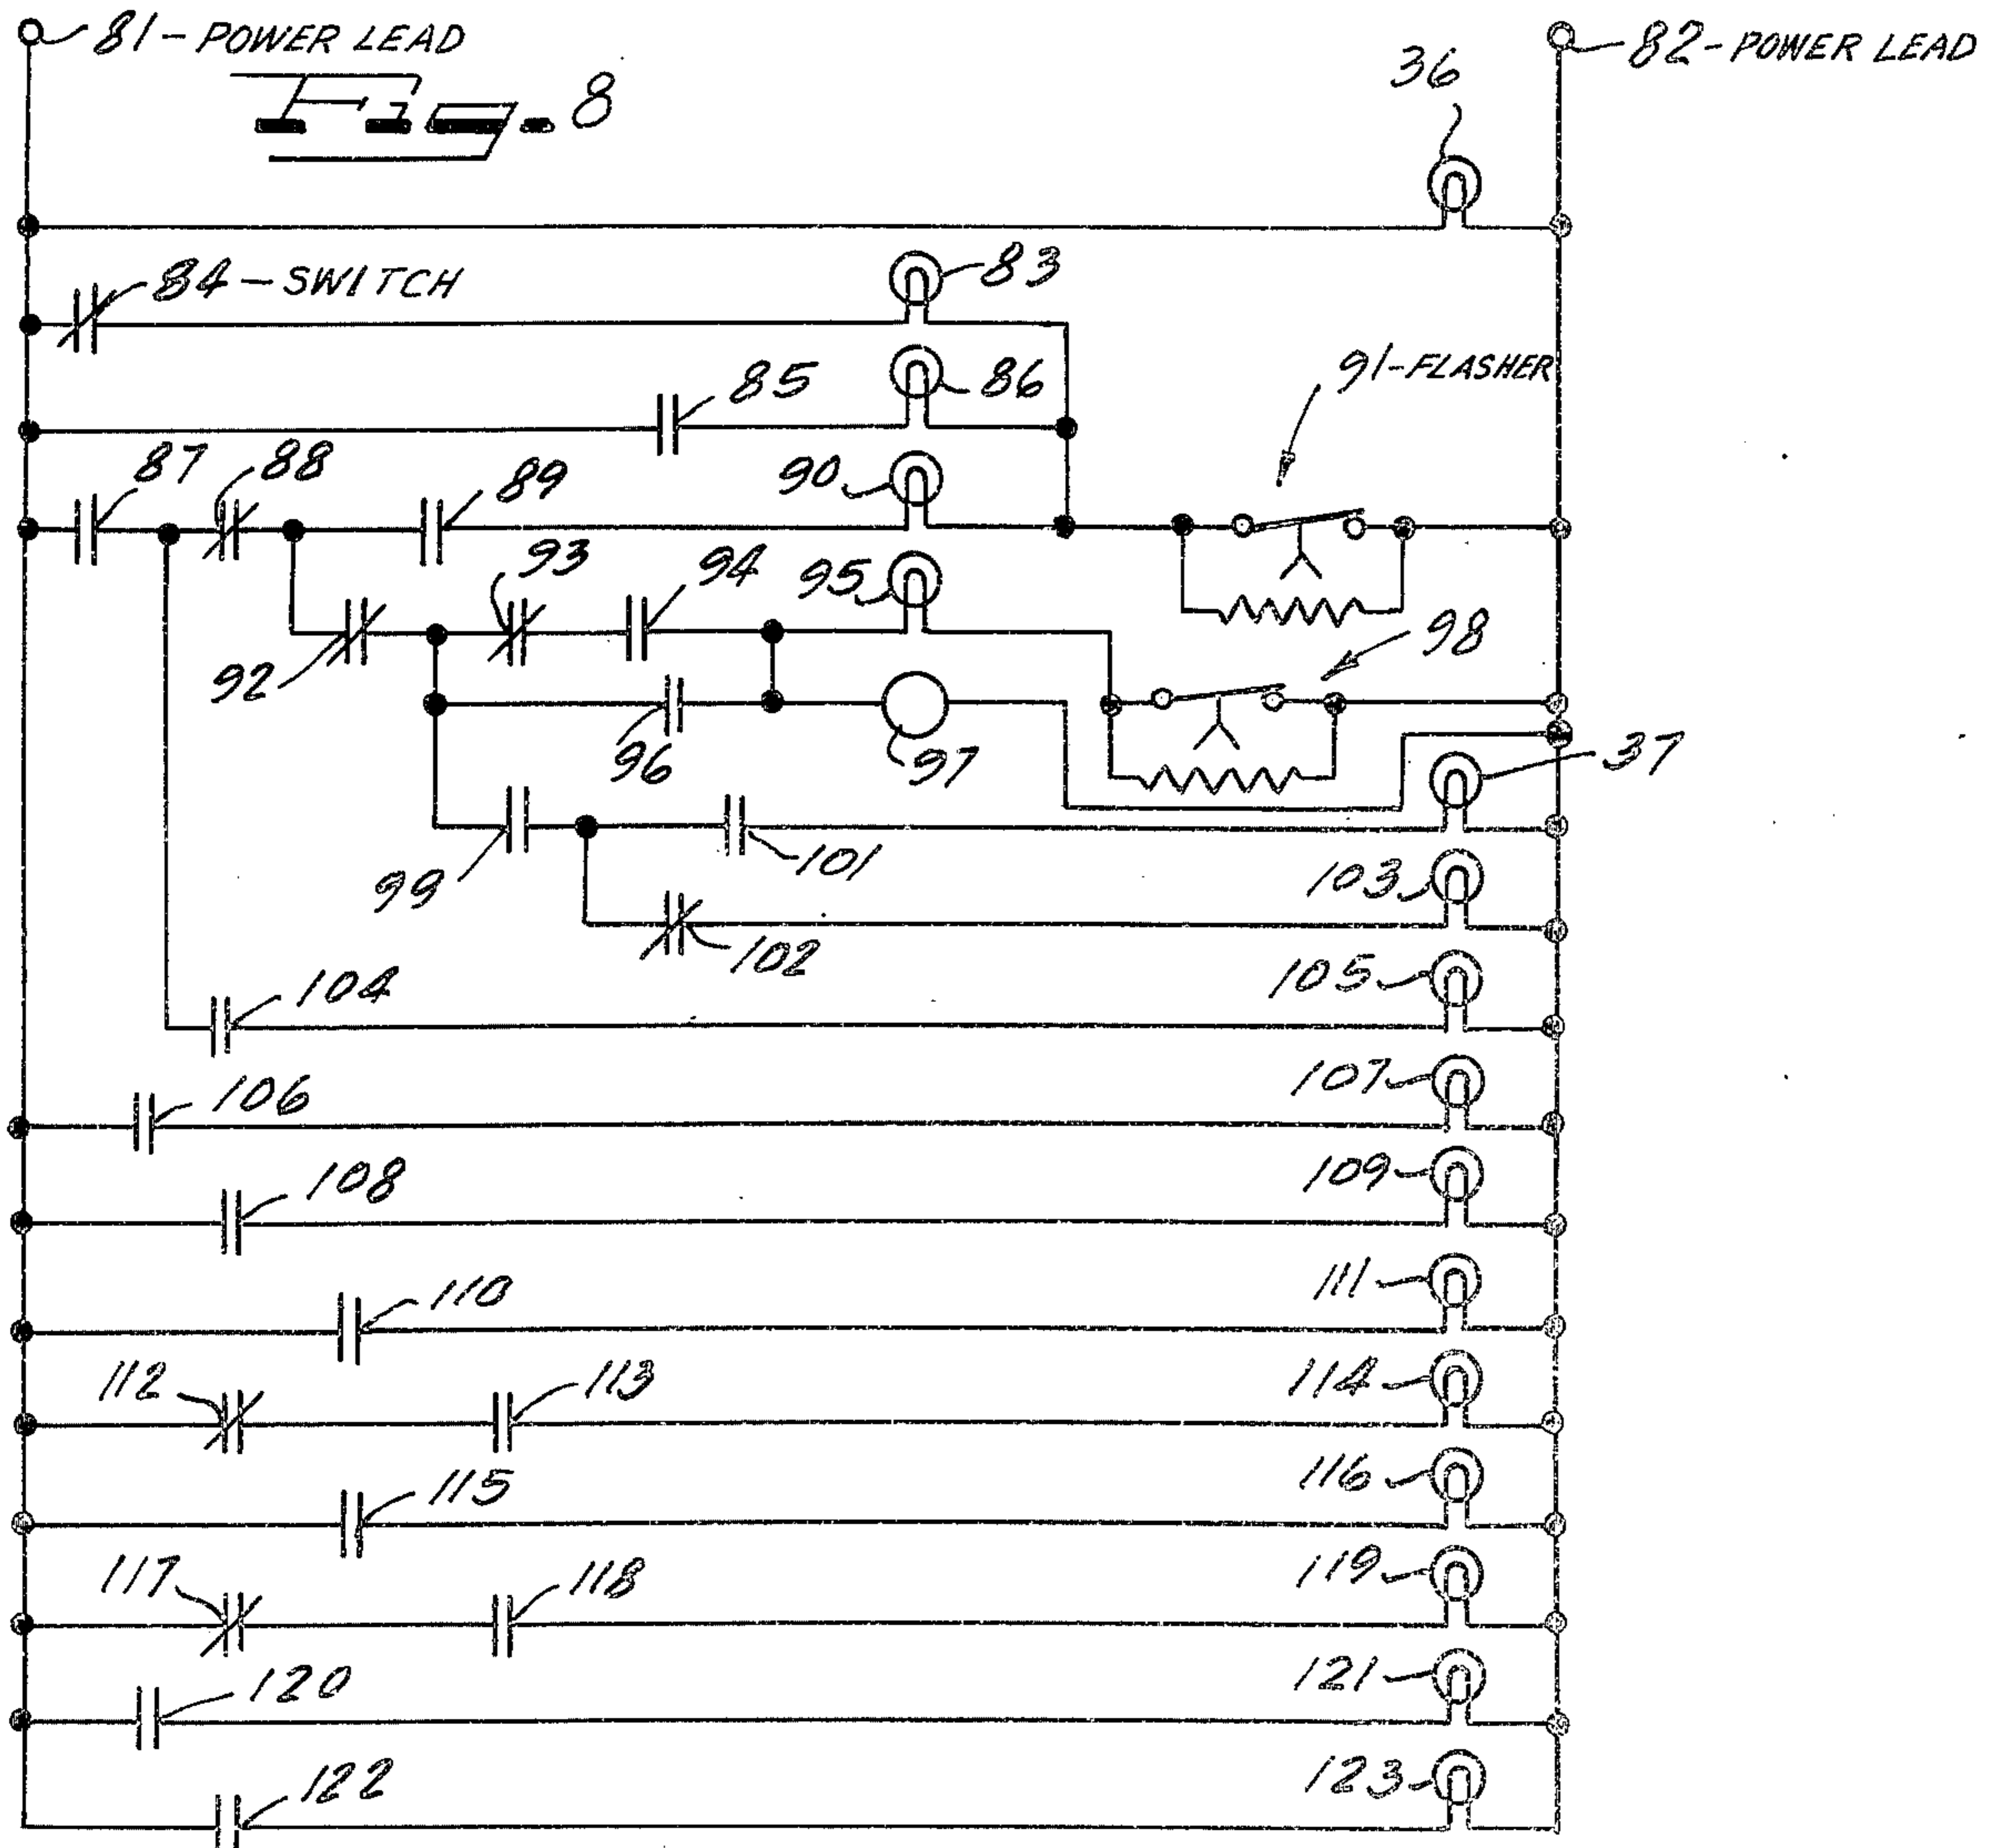 81-POWER LEAD
82-POWER LEAD
Fig-8
36
84-SWITCH
83
85
86
91-FLASHER
87
88
89
90
93
94
95
92
98
96
97
37
99
101
103
102
104
105
106
107
108
109
110
111
112
113
114
115
116
117
118
119
120
121
122
123